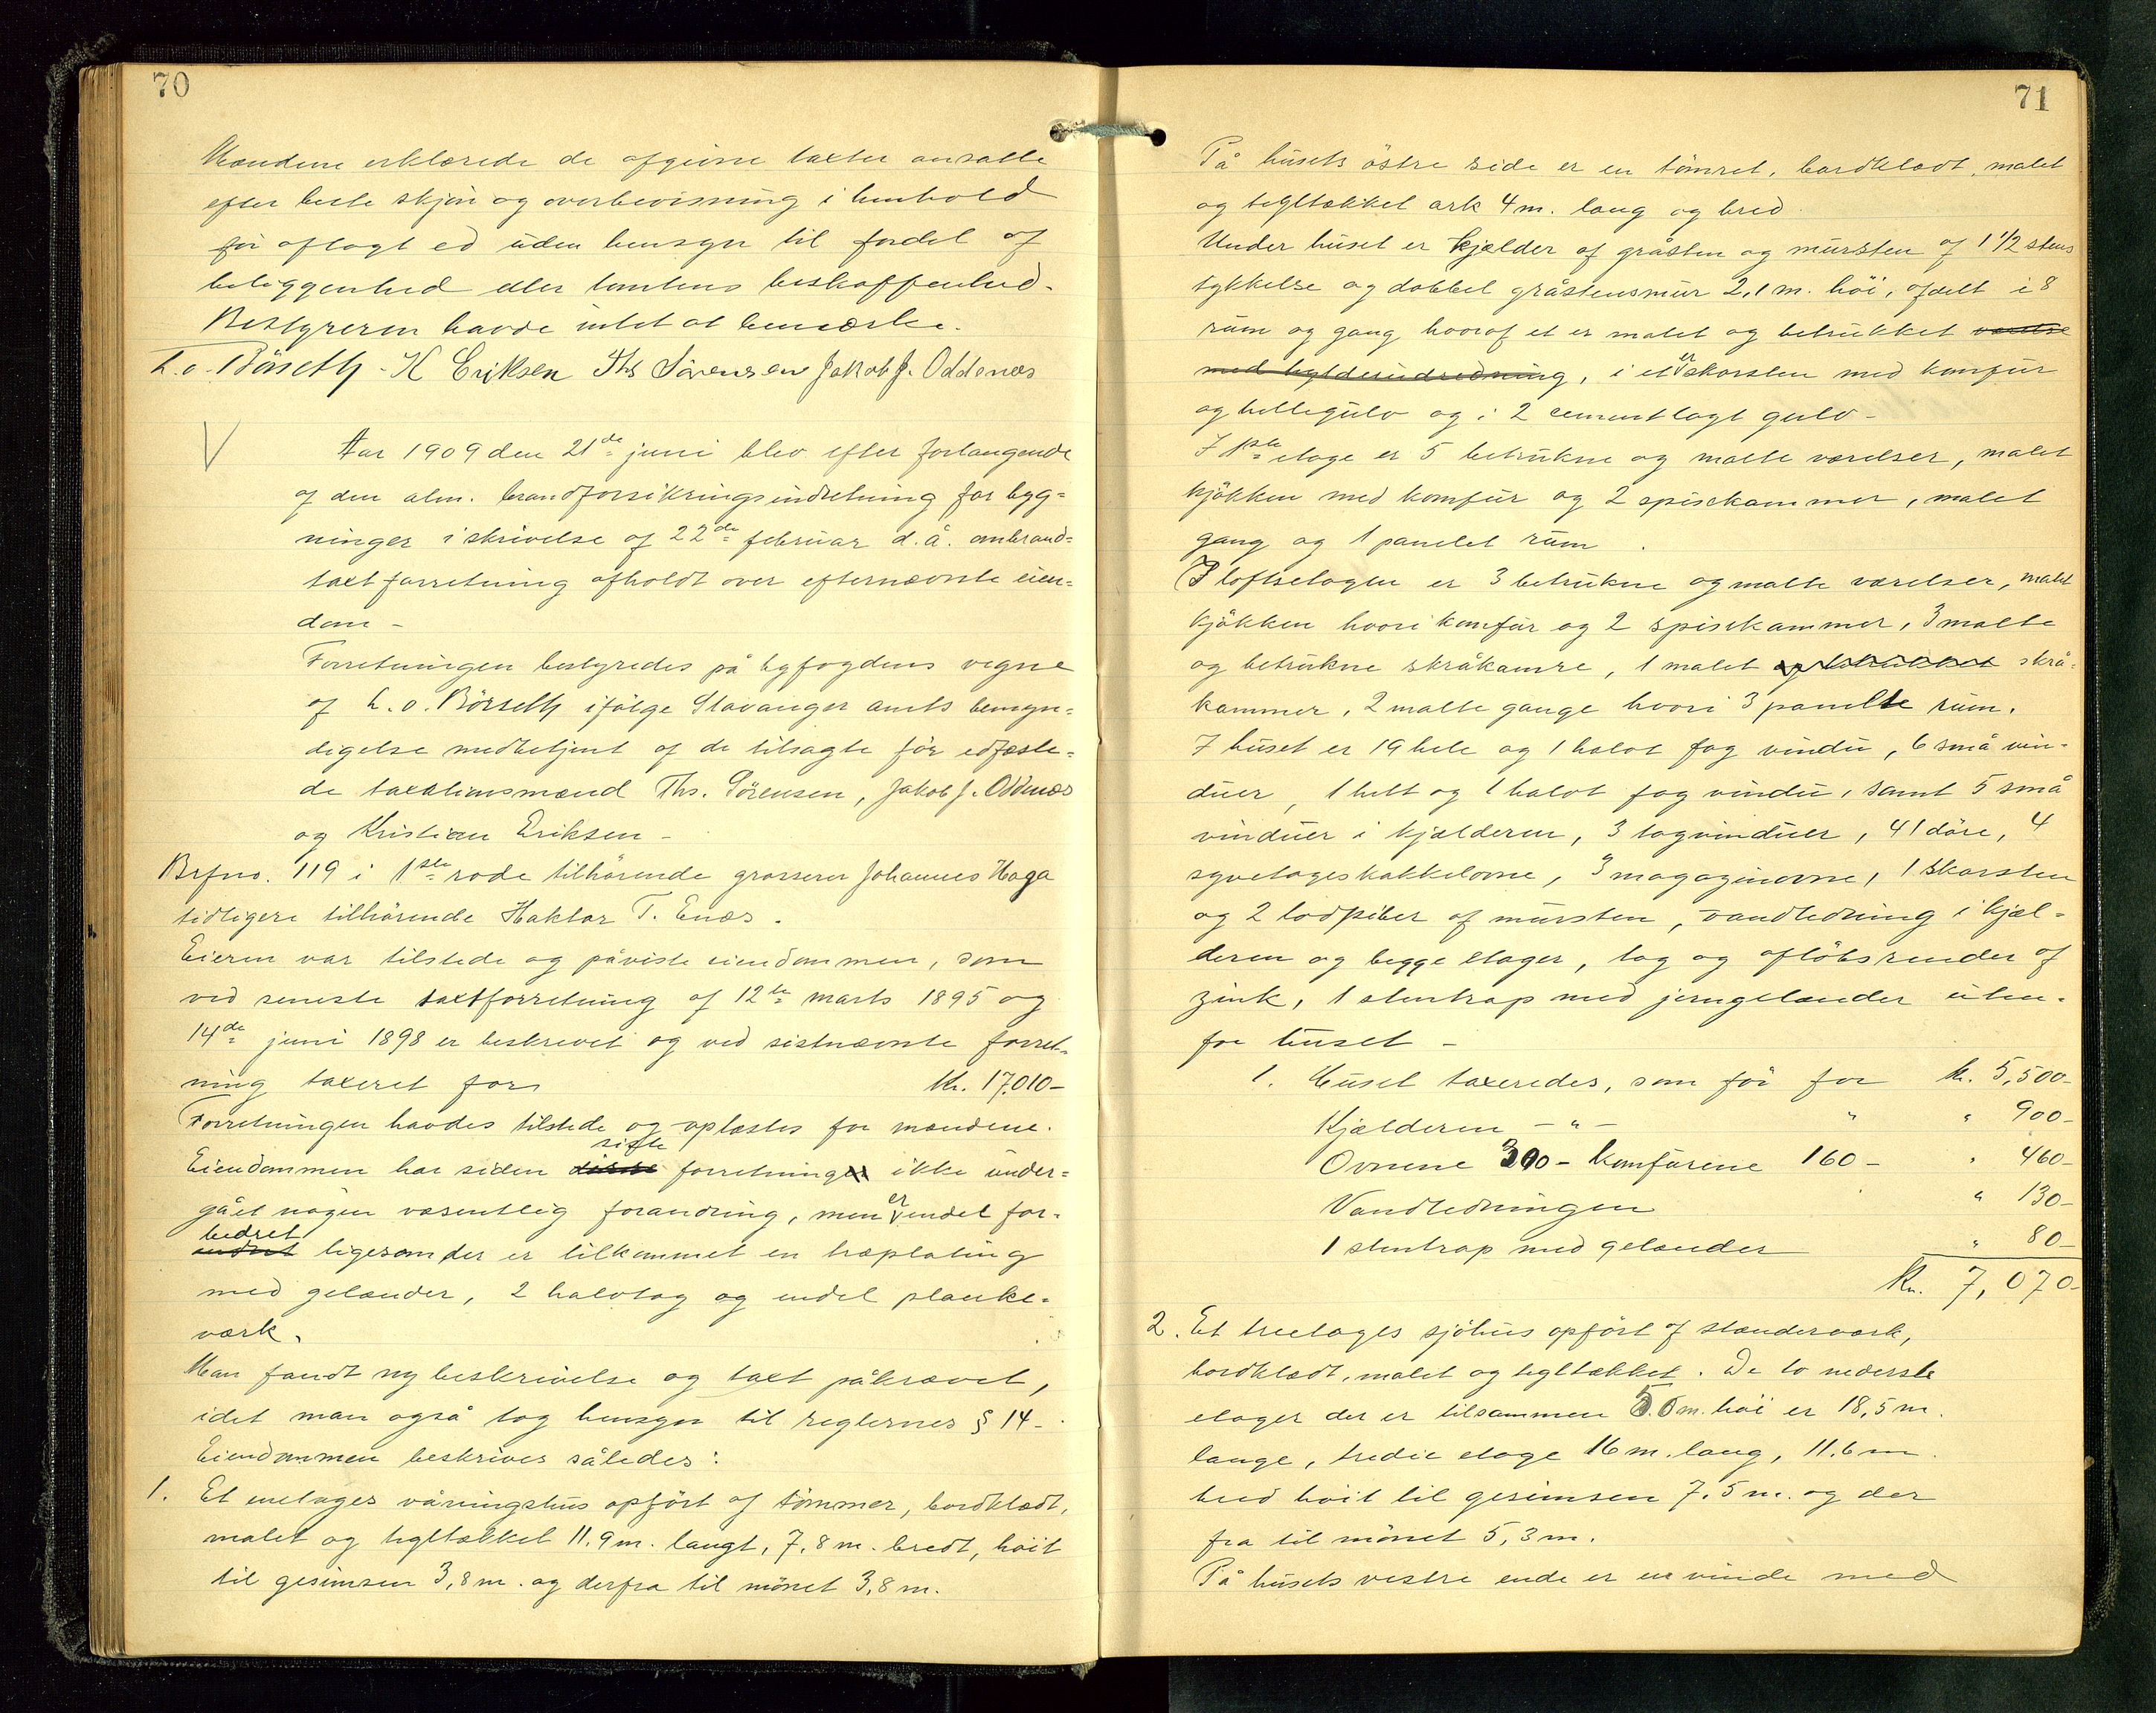 70
Mændene erklærede de afgivne taxter ansatte
efter beste skjøn og overbevisning i henhold
før aflagt ed uden hensyn til fordel af
beliggenhed eller tomtens beskaffenhed.
Bestyreren havde intet at bemærke.
L. o. Börseth - K Eriksen Ths Sörensen Jakob J. Oddenæs
V
Aar 1909 den 21de juni blev efter forlangende
af den alm. brandforsikringsindretning for byg=
ninger i skrivelse af 22de februar d. å. ombrand=
taxtforretning afholdt over efternævnte eien=
dom -
Forretningen bestyredes på byfogdens vegne
af L. o. Börseth ifölge Stavanger amts bemyn=
digelse medbetjent af de tilsagte för edfæste=
de taxationsmænd Ths. Sörensen, Jakob J. Oddenæs
og Kristian Eriksen -
Brfno. 119 i 1ste rode tilhörende grosserer Johannes Haga
tidligere tilhörende Haktor T. Enæs.
Eieren var tilstede og påviste eiendommen, som
ved seneste taxtforretning af 12te marts 1895 og
14de juni 1898 er beskrevet og ved sistnævnte forret=
ning taxeret for Kr. 17,010-
Forretningen havdes tilstede og oplæstes for mændene.
siste
Eiendommen har siden disse forretninger ikke under=
gået nogen væsentlig forandring, men er endel for=
bedret
endret ligesom der er tilkommet en træplating
med gelænder, 2 halvtag og endel planke=
værk.
Man fandt ny beskrivelse og taxt påkrævet,
idet man også tog hensyn til reglernes § 14-
Eiendommen beskrives således:
1. Et enetages våningshus opfört af tömmer, bordklædt,
malet og tegltækket 11.9 m. langt, 7,8 m. bredt, höit
til gesimsen 3,8 m. og derfra til mönet 3,8 m.
71
På husets östre side er en tömret, bordklædt, malet
og tegltækket ark 4 m. lang og bred
Under huset er kjælder af gråsten og mursten af 1 1/2 stens
tykkelse og dobbel gråstensmur 2,1 m. höi, afdelt i 8
rum og gang hvoraf et er malet og betrukket værelse
med hyldeindredning, i et er skorsten med komfur
og hellegulv og i 2 cementlagt gulv -
I 1ste etage er 5 betrukne og malte værelser, malet
kjökken med komfur og 2 spisekammer, malet
gang og 1 panelet rum.
I loftsetagen er 3 betrukne og malte værelser, malet
kjökken hvori komfur og 2 spisekammer, 3 malte
og betrukne skråkamre, 1 malet og betrukket skrå=
kammer, 2 malte gange hvori 3 panelte rum.
I huset er 19 hele og 1 halvt fag vindu, 6 små vin=
duer, 1 helt og 1 halvt fag vindu, samt 5 små
vinduer i kjælderen, 3 tagvinduer, 41 döre, 4
syvetageskakkelovne, 3 magazinovne, 1 skorsten
og 2 lodpiber af mursten, vandledning i kjæl=
deren og begge etager, tag og aflöbsrender af
zink, 1 stentrap med jerngelænder uten=
for huset -
1. Huset taxeredes, som för for kr. 5,500-
Kjælderen - " - " " 900-
Ovnene 300- komfurene 160- " 460-
Vandledningen " 130-
1 stentrap med gelænder " 80-
Kr. 7,070-
2. Et treetages sjöhus opfört af stænderværk,
bordklædt, malet og tegltækket. De to nederste
etager der er tilsammen 5.0 m. höi er 18,5 m.
lange, tredie etage 16 m. lang, 11.6 m.
bred höit til gesimsen 7.5 m. og der
fra til mönet 5,3 m.
På husets vestre ende er en vinde med